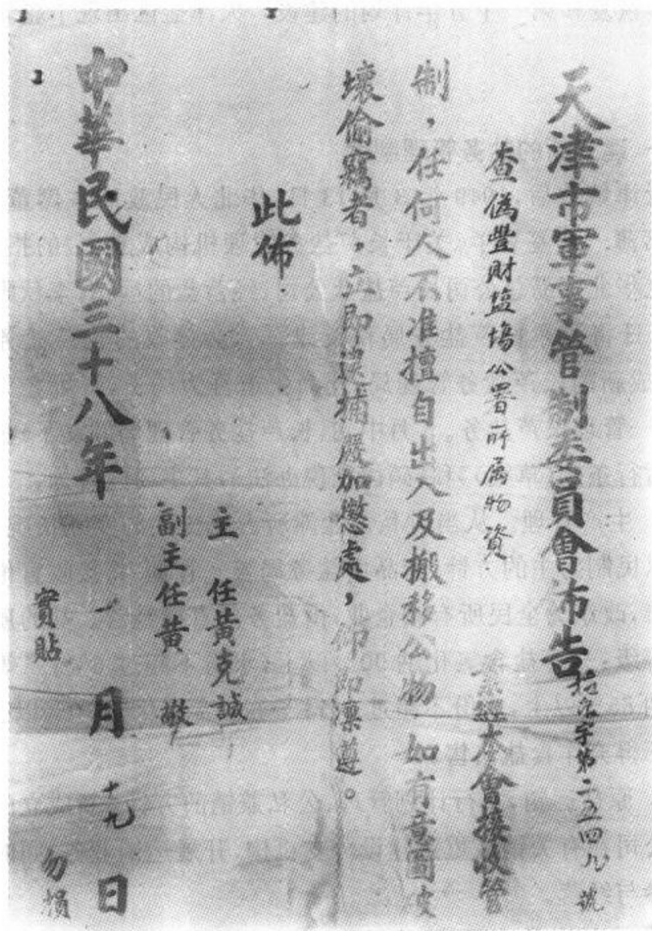 天津市軍事管制委員會佈告
字第二五四九號
查偽豐財盐場公署所属物資
業經本會接收管
制，任何人不准擅自出入及搬移公物，如有意圖破
壞偷竊者，立即逮捕嚴加懲處，仰即凛遵。
此佈
主 任黃克誠
副主任黃 敬
中華民國三十八年 一 月 十九 日
實貼 勿損